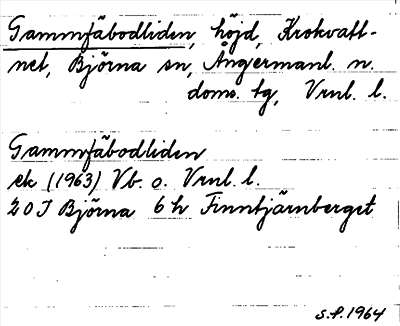 Gammfäbodliden, höjd, Krokvatt-
net, Björna sn, Ångermanl. n.
doms. tg, Vrnl. l.
Gammfäbodliden
ek (1963) Vb. o. Vrnl. l.
20 J Björna 6 h Finntjärnberget
S.F. 1964